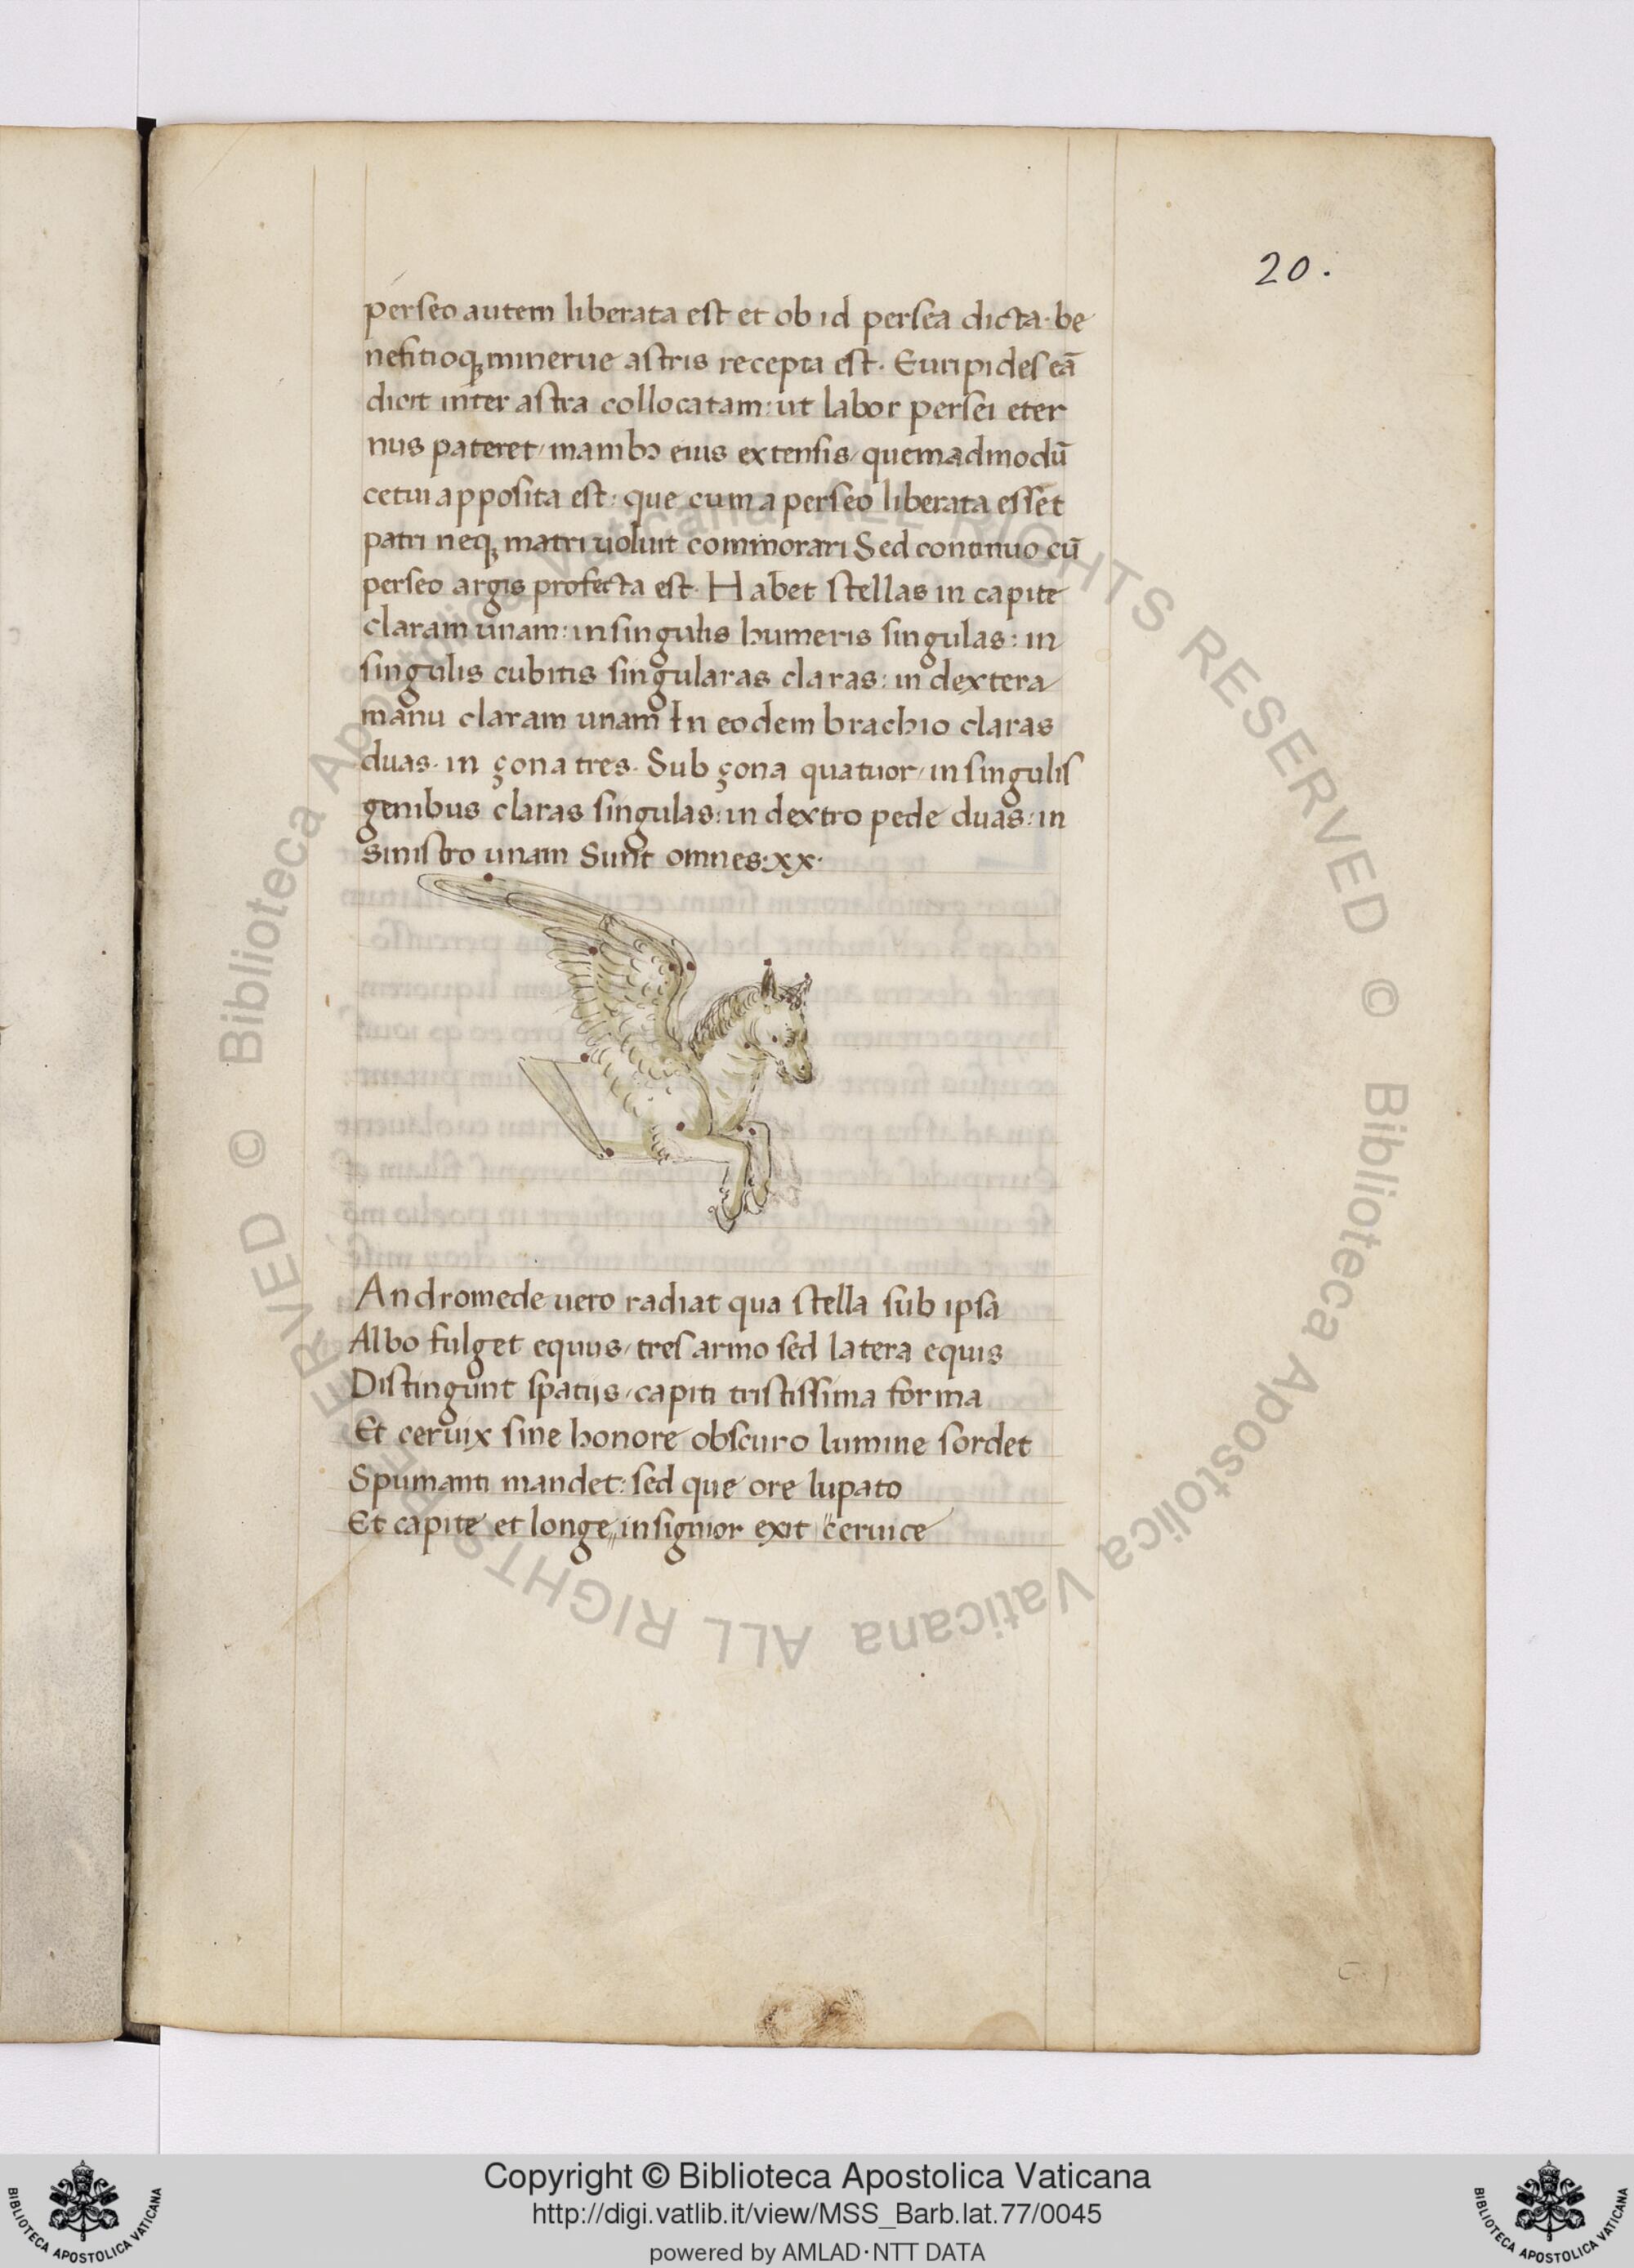 20.
perseo autem liberata est et ob id persea dicta· be
nefitioqꝫ minerue astris recepta est· Euripides eā
dicit inter astra collocatam: ut labor persei eter
nus pateret/ manibꝰ eius extensis/ quemadmodū
cetui apposita est: que cum a perseo liberata esset
patri neqꝫ matri uoluit commorari Sed continuo cū
perseo argis profecta est· Habet stellas in capite
claram unam: in singulis humeris singulas: in
singulis cubitis singularas claras: in dextera
manu claram unam In eodem brachio claras
duas· in çona tres· Sub çona quatuor/ in singulis
genibus claras singulas: in dextro pede duas: in
sinistro unam Sunt omnes·xx·
Andromede uero radiat qua stella sub ipsa
Albo fulget equus/ tres armo sed latera equis
Distingunt spatijs/ capiti tristissima forma
Et ceruix sine honore obscuro lumine sordet
Spumanti mandet: sed que ore lupato
Et capite et longe„ insignior exit "ceruice
© Biblioteca Apostolica Vaticana ALL RIGHTS RESERVED © Biblioteca Apostolica Vaticana ALL RIGHTS RESERVED
Copyright © Biblioteca Apostolica Vaticana
http://digi.vatlib.it/view/MSS_Barb.lat.77/0045
powered by AMLAD·NTT DATA
BIBLIOTECA APOSTOLICA VATICANA
BIBLIOTECA APOSTOLICA VATICANA